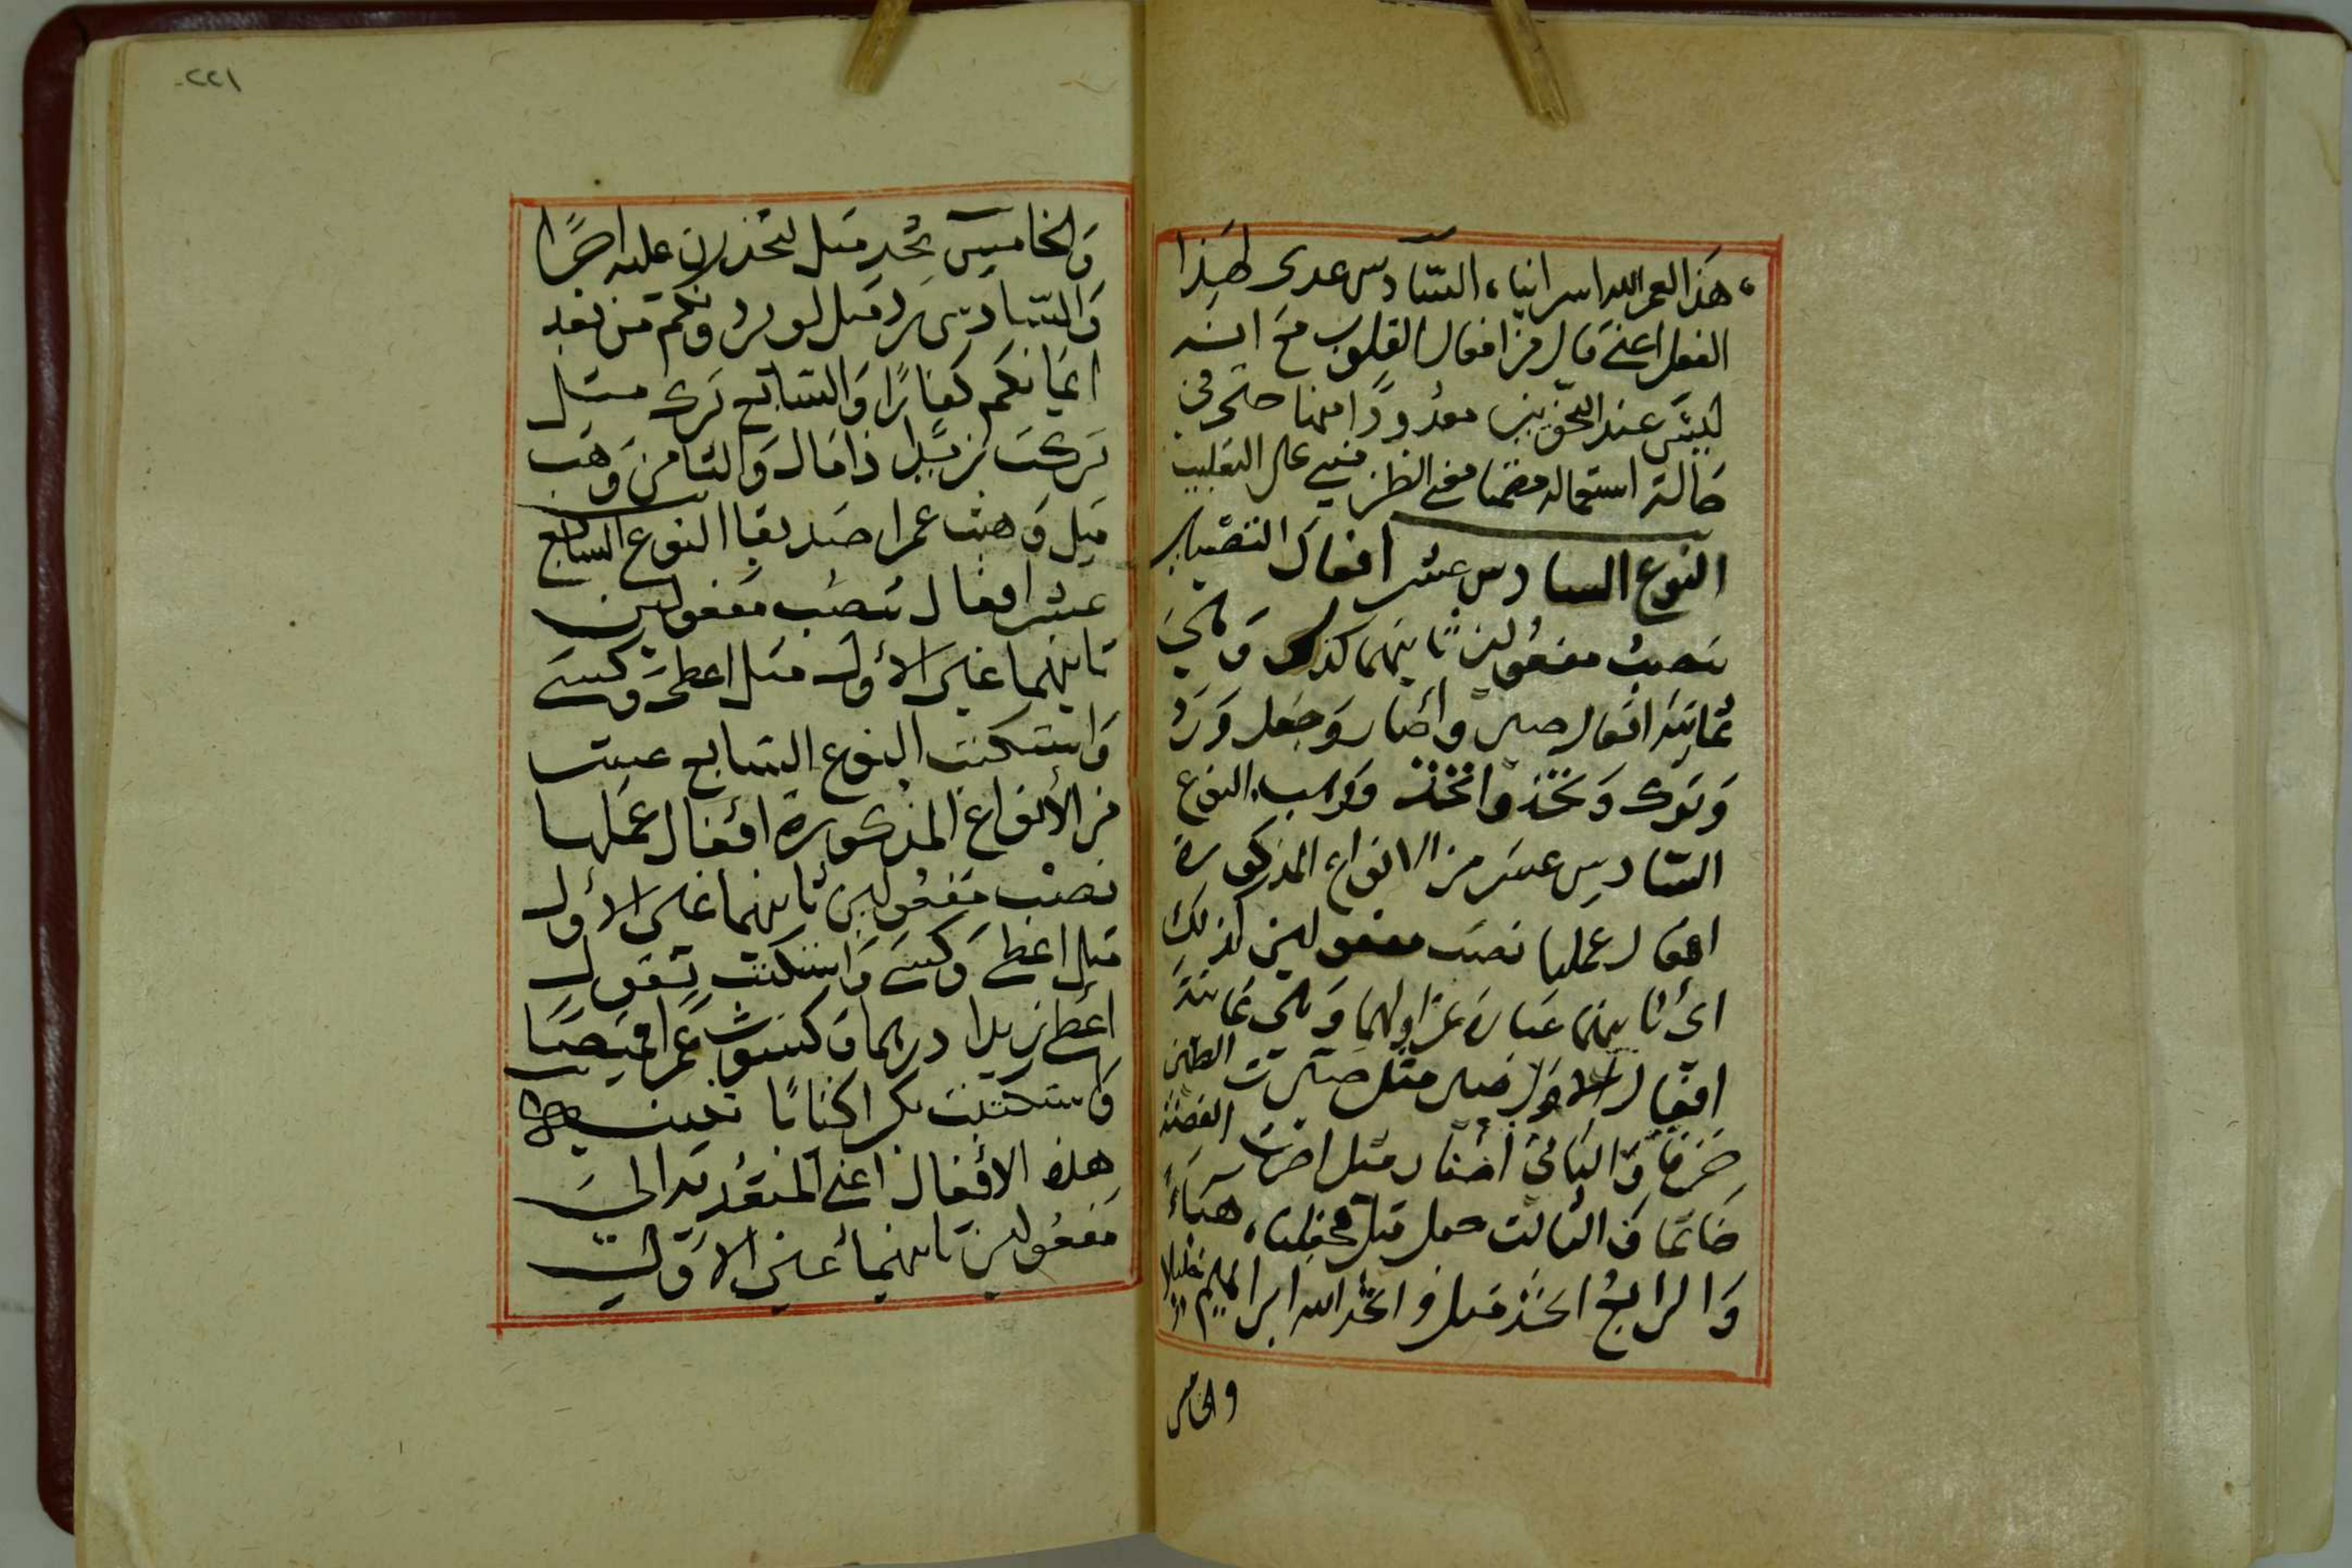 هذا لعمر الله اسرائينا، السّادس عدى لهذا
الفعل اعنے قال من افعال القلوب مع انه
ليس عند النحويين معدودًا منها حتى في
حالة استعماله مضمنا معنے الظن مبنے على التغليب
النوع السادس عشر افعال التصيير
تنصب مفعولين ثانيهما كذلك وهي
ثمانية افعال صير واصار وجعل ورد
وترك وتخذ واتخذ ووهب، النوع
السّادس عشر من الانواع المذكورة
افعال عملها نصب مفعولين كذلك
اى ثانيهما عبارة عن اولهما وهي ثمانية
افعال الاول صير مثل صيرت الطين
خزفا وَالثاني اصار مثل اصرت الفضة
خاتما وَالثالث جعل مثل فجعلناه هباءً
وَالرابعُ اتخذ مثل واتخذ الله ابراهيم خليلا
والخامس
٢٢١
وَالخامس تخذ مثل لتخذت عليه اجرًا
وَالسّادس رد مثل لو يردونكم من بعد
ايمانكم كفارًا وَالسّابع ترك مثل
تركت زيدا ذا مال وَالثامن وَهَب
مثل وَهبت عمرا صديقا النوع السابع
عشر افعال تنصب مفعولين
ثانيهما غير الأول مثل اعطى وكسى
وَاستكتب النوع السّابع عشر
من الأنواع المذكورة افعال عملها
نصب مفعولين ثانيهما غير الأول
مثل اعطے وَكسے وَاستكتب تقول
اعطے زيدا درهما وكسوت عمرا قميصا
وَاستكتبت بكرا كتابا
هذه الأفعال اعنے المتعدية الى
مفعولين ثانيهما غير الاول